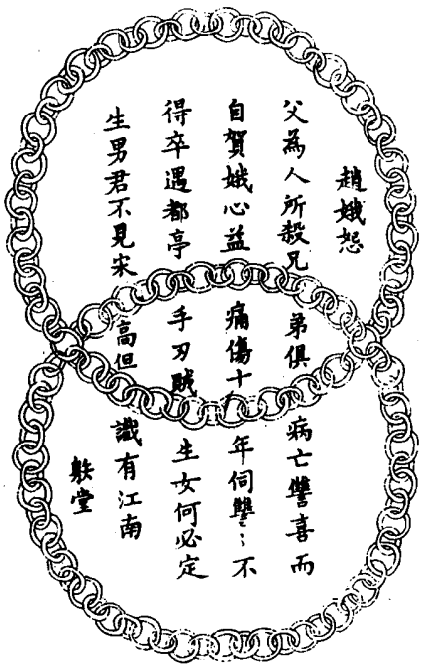 趙娥怨
父為人所殺兄弟俱病亡讐喜而
自賀娥心益痛傷十年伺讐〻不
得卒遇都亭手刃賊生女何必定
生男君不見宋高但識有江南
堂